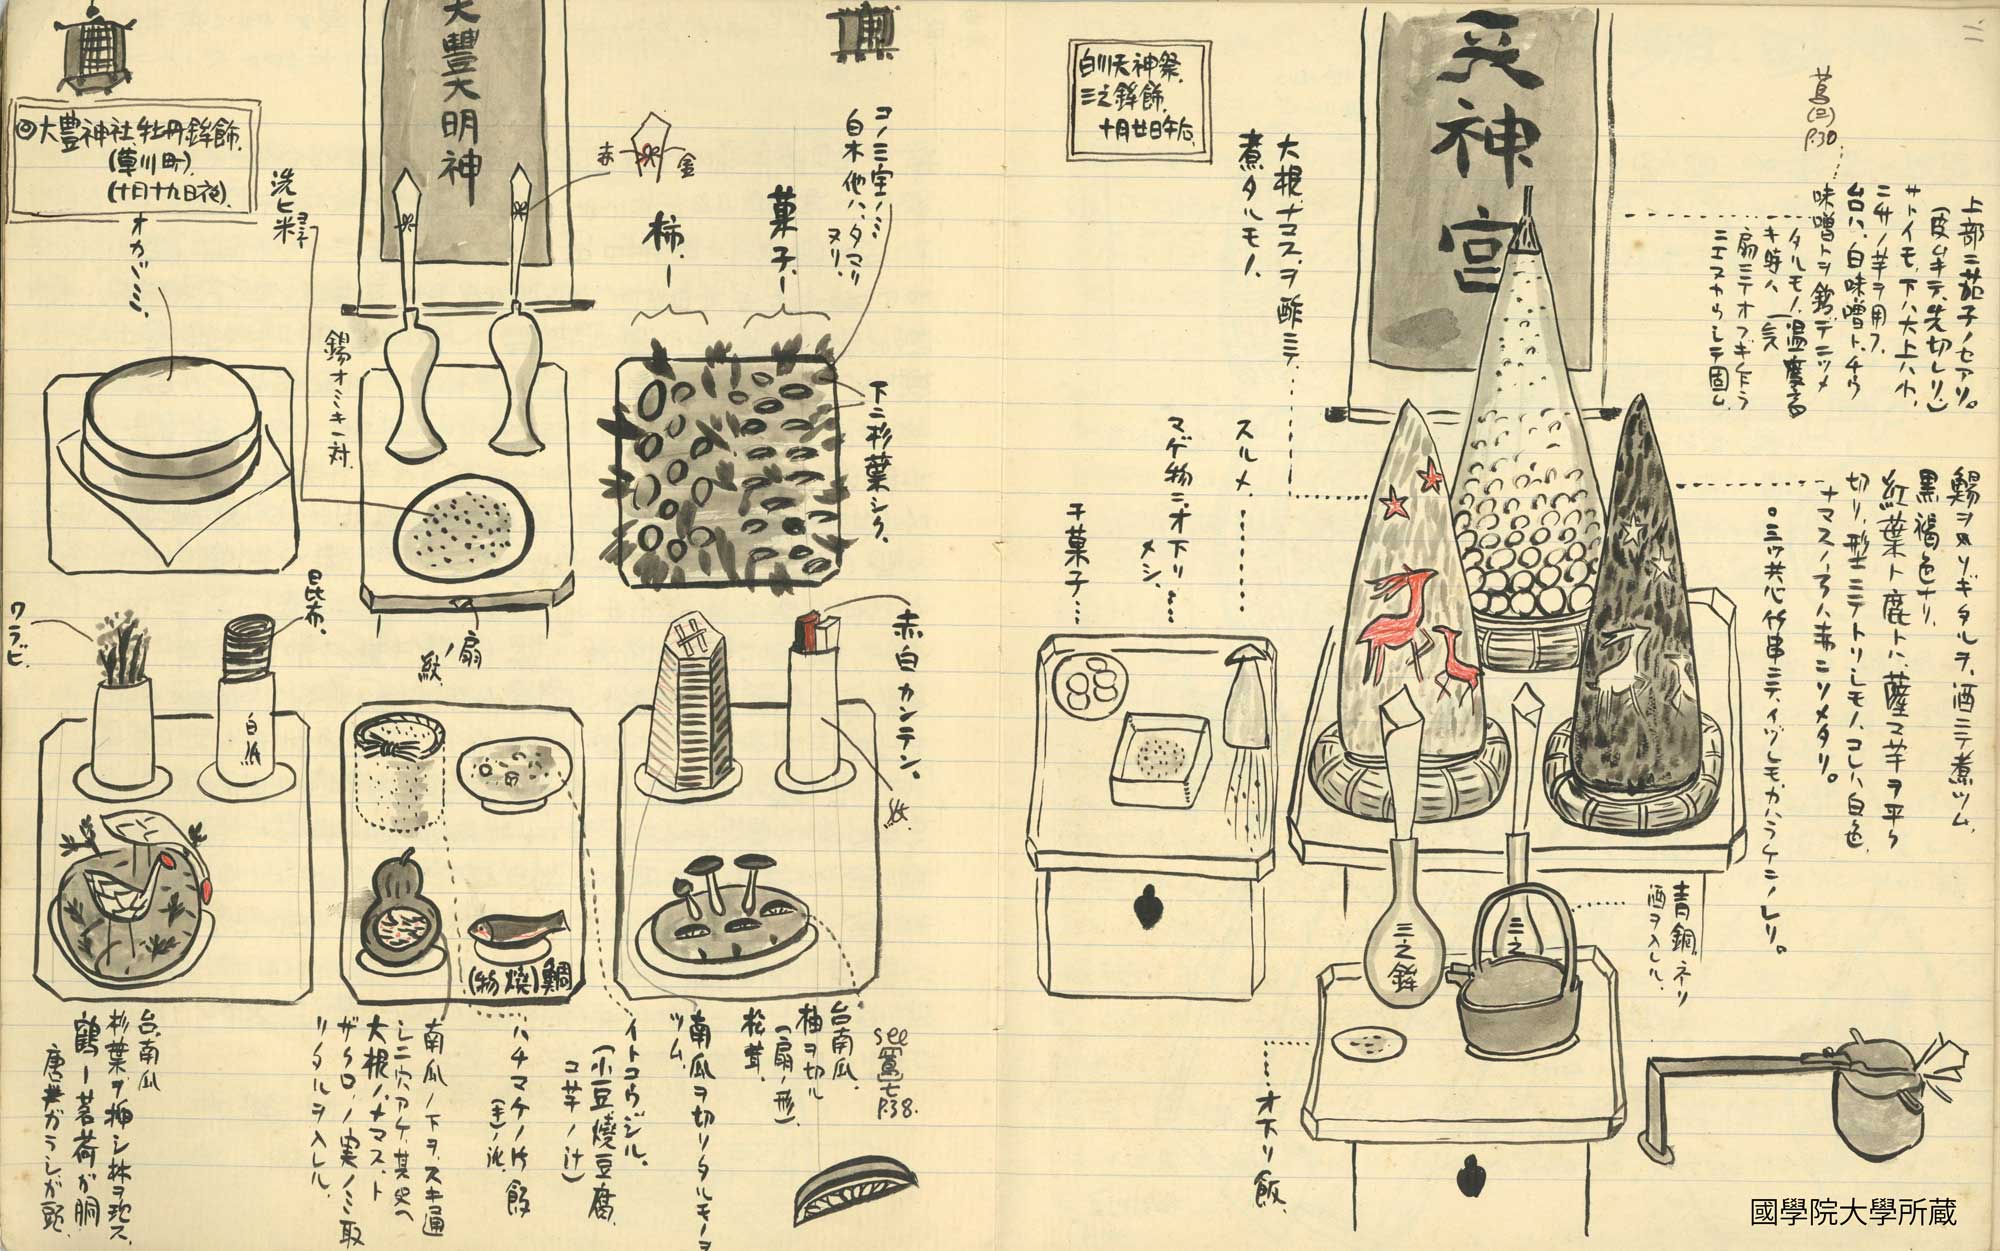 天神宮
白川天神祭
三之鉾飾
十月廿日午后
大根ナマスヲ酢ニテ
煮タルモノ
スルメ
マゲ物ニオ下リ
メシ
干菓子
蔦(三)
P.30
上部ニ茄子ノセアリ。
(皮ムキテ先切レリ)
サトイモ、下ハ大上ハ小、
ニサノ芋ヲ用フ
台口ハ、白味噌ト
味噌トヲ鍋デニツメ
タルモノ、温度高
キ時ハ、一気
扇ニテオフギ乍ラ
シテ固ム
鯣ヲソギタルヲ、酒ニテ煮ツム
黒褐色ナリ
紅葉ト鹿トハ、薩マ芋ヲ平ク
切リ、型ニテトリシモノ、コレハ白色
ナマスノ方ハ赤ニソメタリ。
○三ツ共心竹串ニテ、イヅレモカハラケニノレリ。
三之鉾
三之
青銅ネリ
酒ヲ入レル
オ下リ飯
大豊大明神
大豊神社、牡丹鉾飾
(草川町)
(十月十九日夜)
オカガミ
洗ヒ米
錫オミキ一対
赤
金
柿
菓子
コノ三宝ノミ
白木他ハ、タマリ
ヌリ
下ニ杉葉シク
扇ノ紋
ワラビ
昆布
白瓜
赤白カンテン。
鯛(焼物)
台南瓜
杉葉ヲ挿シ林ヲ現ス
鶴ー茗荷ガ胴
唐ガラシガ頭
南瓜ノ下ヲスキ通
シニ穴アケ、其処ヘ
大根ノナマスト
ザクロノ実ノミ取
リタルヲ入レル
ハチマケノ付飯
イトコウジル。
(小豆焼豆腐
コ芋ノ汁)
南瓜ヲ切リタルモノヲ
ツム
松茸
柚ヲ切ル
(扇ノ形)
台南瓜
see
P.38.
國學院大學所蔵